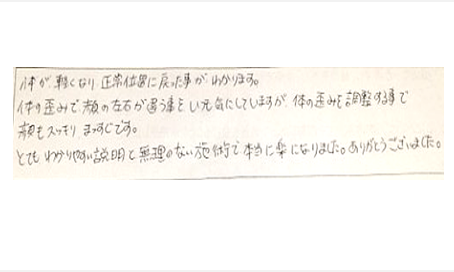 体が軽くなり正常位置に戻った事がわかります。
体の歪みで顔の左右が違う事をいつも気にしていますが、体の歪みを調整する事で
顔もスッキリまっすぐです。
とてもわかりやすい説明と無理のない施術で本当に楽になりました。ありがとうございました。